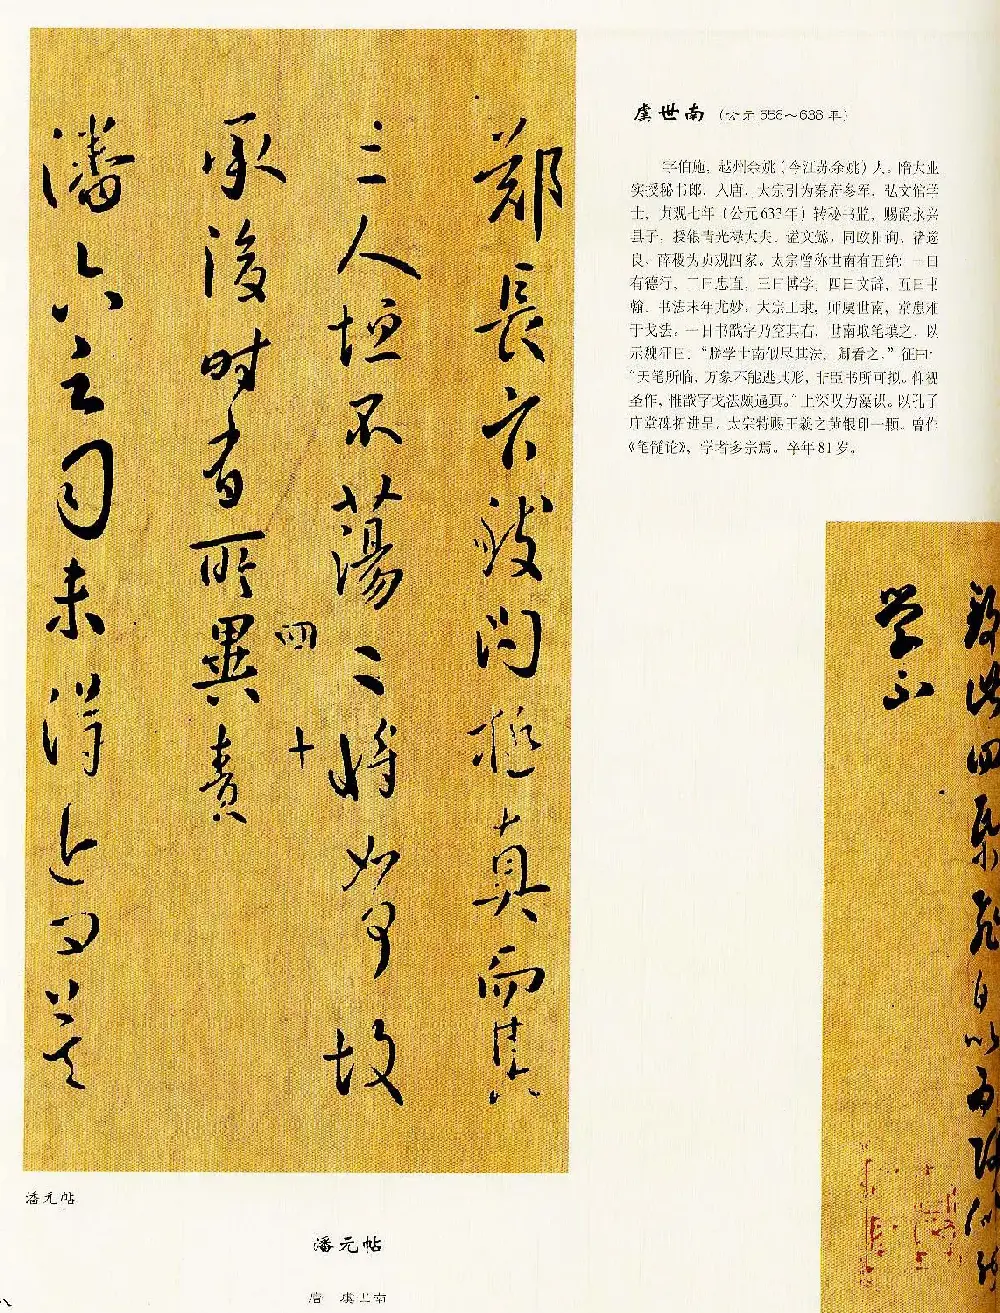 虞世南 (公元558～638年)
字伯施，越州余姚（今江苏余姚）人。隋大业
实授秘书郎，入唐，太宗引为秦府参军、弘文馆学
士，贞观七年（公元633年）转秘书监，赐爵永兴
县子，授银青光禄大夫，谥文懿，同欧阳询、褚遂
良、薛稷为贞观四家。太宗曾称世南有五绝：一曰
有德行，二曰忠直，三曰博学，四曰文辞，五曰书
翰。书法末年尤妙，太宗工隶，师虞世南，常患难
于戈法。一日书戬字乃空其右，世南取笔填之，以
示魏征曰：“朕学世南似尽其法，卿看之。”征曰：
“天笔所临，万象不能逃其形，非臣书所可拟。仰视
圣作，惟戬字戈法颇逼真。”上深叹为藻识。以孔子
庙堂碑拓进呈，太宗特赐王羲之黄银印一颗。曾作
《笔髓论》，学者多宗焉。卒年81岁。
鄭長官致问極真而其
三人恒不蕩二将如何故
承後時有所異責
四十
潘六云司未得近问莫
致此四纸飞白以
学士
潘元帖
潘元帖
唐 虞世南
八